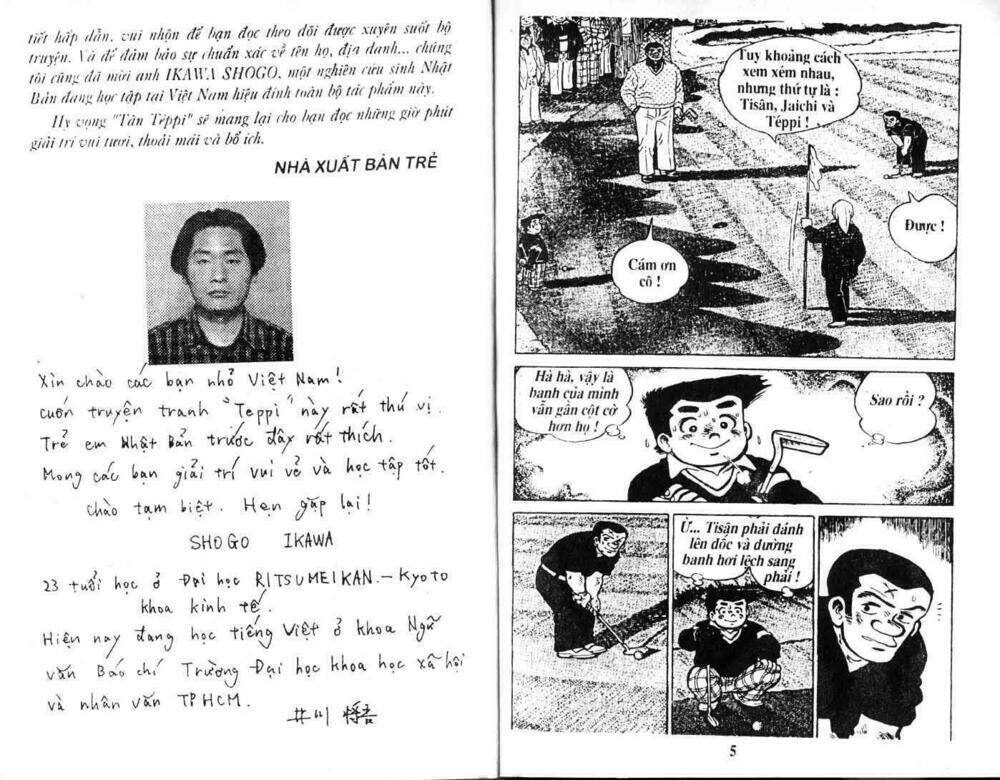 tiết hấp dẫn, vui nhộn để bạn đọc theo dõi được xuyên suốt bộ
truyện. Và để đảm bảo sự chuẩn xác về tên họ, địa danh... chúng
tôi cũng đã mời anh IKAWA SHOGO, một nghiên cứu sinh Nhật
Bản đang học tập tại Việt Nam hiệu đính toàn bộ tác phẩm này.
Hy vọng "Tân Téppi" sẽ mang lại cho bạn đọc những giờ phút
giải trí vui tươi, thoải mái và bổ ích.
NHÀ XUẤT BẢN TRẺ
Xin chào các bạn nhỏ Việt Nam!
cuốn truyện tranh "Teppi" này rất thú vị.
Trẻ em Nhật Bản trước đây rất thích.
Mong các bạn giải trí vui vẻ và học tập tốt.
chào tạm biệt. Hẹn gặp lại!
SHOGO IKAWA
23 tuổi học ở Đại học RITSUMEIKAN.-Kyoto
khoa kinh tế.
Hiện nay đang học tiếng Việt ở khoa Ngữ
văn Báo chí Trường Đại học khoa học xã hội
và nhân văn TPHCM.
井川 將吾
Tuy khoảng cách
xem xém nhau,
nhưng thứ tự là :
Tisân, Jaichi và
Téppi !
Được !
Cám ơn
cô !
Hà hà, vậy là
banh của mình
vẫn gần cột cờ
hơn họ !
Sao rồi ?
Ừ... Tisân phải đánh
lên dốc và đường
banh hơi lệch sang
phải !
5